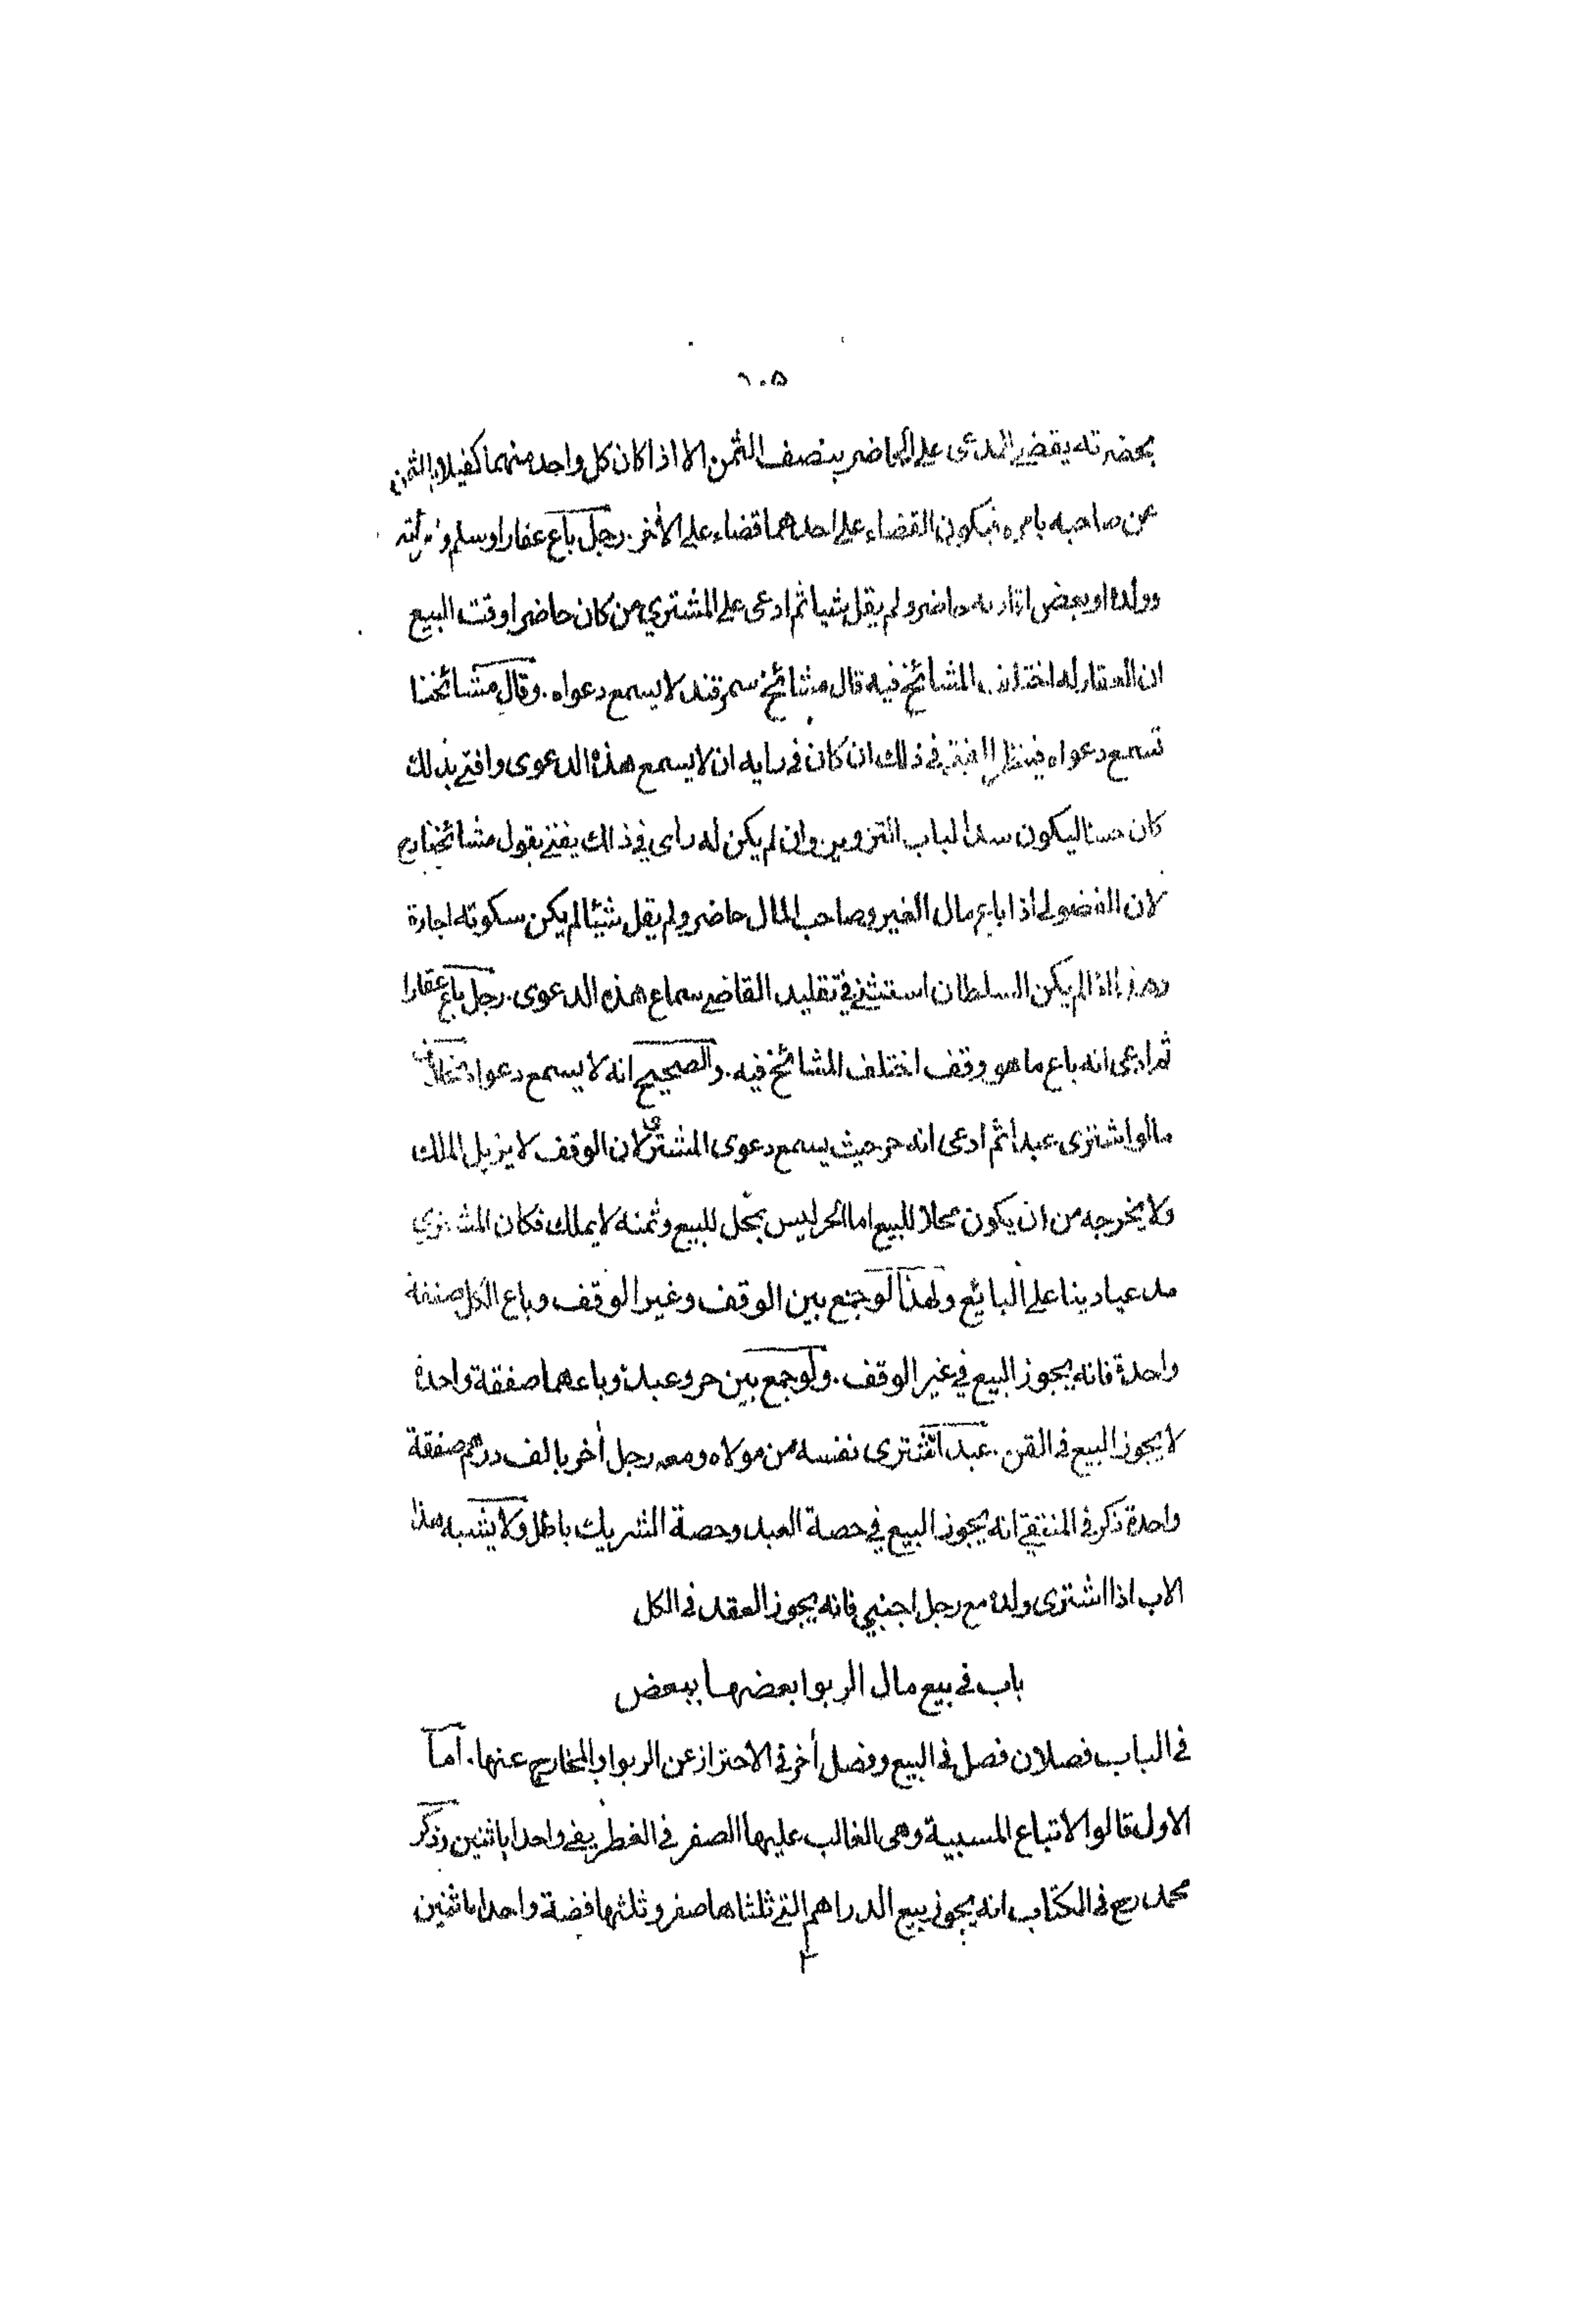 ٦٠٥
بحضرته يقضى للمدعى على الحاضر بنصف الثمن الا اذا كان كل واحد منهما كفيلا بالثمن
عن صاحبه بامره فيكون القضاء على احدهما قضاء على الأخر. رجل باع عقارا وسلم
وولده او بعض اقاربه حاضر ولم يقل شيا ثم ادعى على المشتري من كان حاضرا وقت البيع
ان العقار له اختلف المشائخ فيه قال مشائخ سمرقند لا يسمع دعواه. وقال مشائخنا
تسمع دعواه فينظر المفتى فى ذلك ان كان فى رايه ان لا يسمع هذه الدعوى وافتى بذلك
كان حسنا ليكون سدا لباب التزوير. وان لم يكن له راى في ذلك يفتى بقول مشائخنا رح
لان الفضولى اذا باع مال الغير وصاحب المال حاضر ولم يقل شيئا لم يكن سكوته اجازة
وهذا اذا لم يكن السلطان استثنى في تقليد القاضى سماع هذه الدعوى. رجل باع عقارا
ثم ادعى انه باع ما هو وقف اختلف المشائخ فيه. والصحيح انه لا يسمع دعواه بخلاف
ما لو اشترى عبدا ثم ادعى انه حر حيث يسمع دعوى المشترى لان الوقف لا يزيل الملك
ولا يخرجه من ان يكون محلا للبيع اما الحر ليس بمحل للبيع وثمنه لا يملك فكان المشتري
مدعيا دينا على البائع ولهذا لو جمع بين الوقف وغير الوقف وباع الكل صفقة
واحدة فانه يجوز البيع في غير الوقف. ولو جمع بين حر وعبده وباعهما صفقة واحدة
لا يجوز البيع فى القن. عبد اشترى نفسه من مولاه ومعه رجل أخر بالف درهم صفقة
واحدة ذكر فى المنتقى انه يجوز البيع في حصة العبد وحصة الشريك باطل ولا يشبه هذا
الاب اذا اشترى ولده مع رجل اجنبي فانه يجوز العقد فى الكل
باب فى بيع مال الربوا بعضها ببعض
فى الباب فصلان فصل فى البيع وفصل أخر فى الاحتراز عن الربوا والمخارج عنها. اما
الاول قالوا لا تباع المسبية وهى الغالب عليها الصفر فى الغطريفى واحدا باثنين وذكر
محمد رح فى الكتاب انه يجوز بيع الدراهم التى ثلثاها صفر وثلثها فضة واحدا باثنين